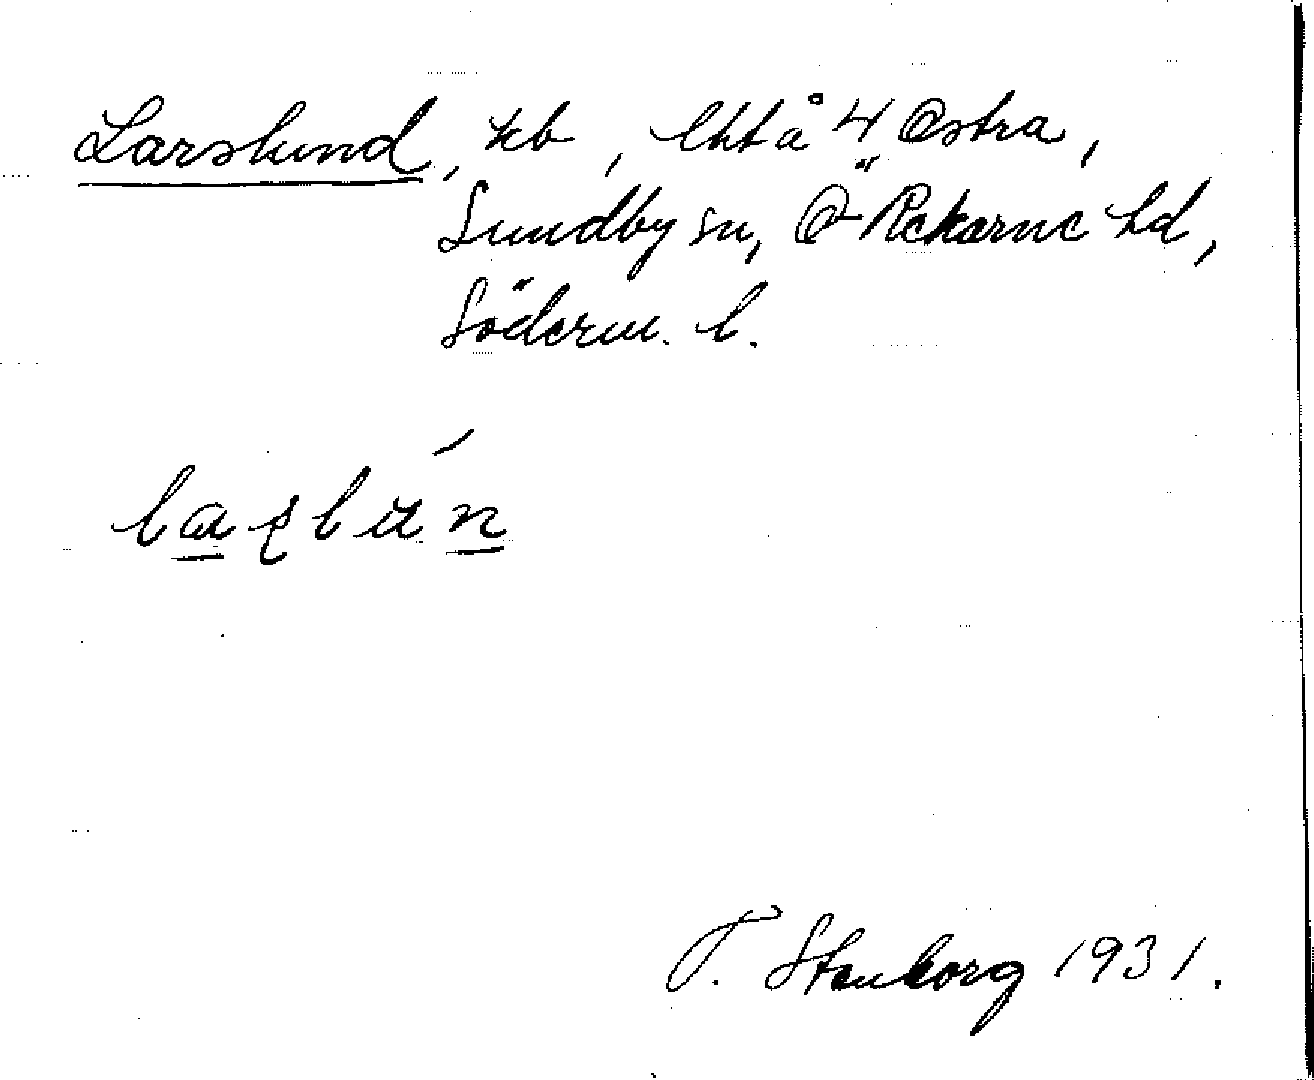 Larslund, kb, Ekta 4 Östra,
Sundby sn, Ö Rekarne hd,
Söderm. l.
T. Stenborg 1931.